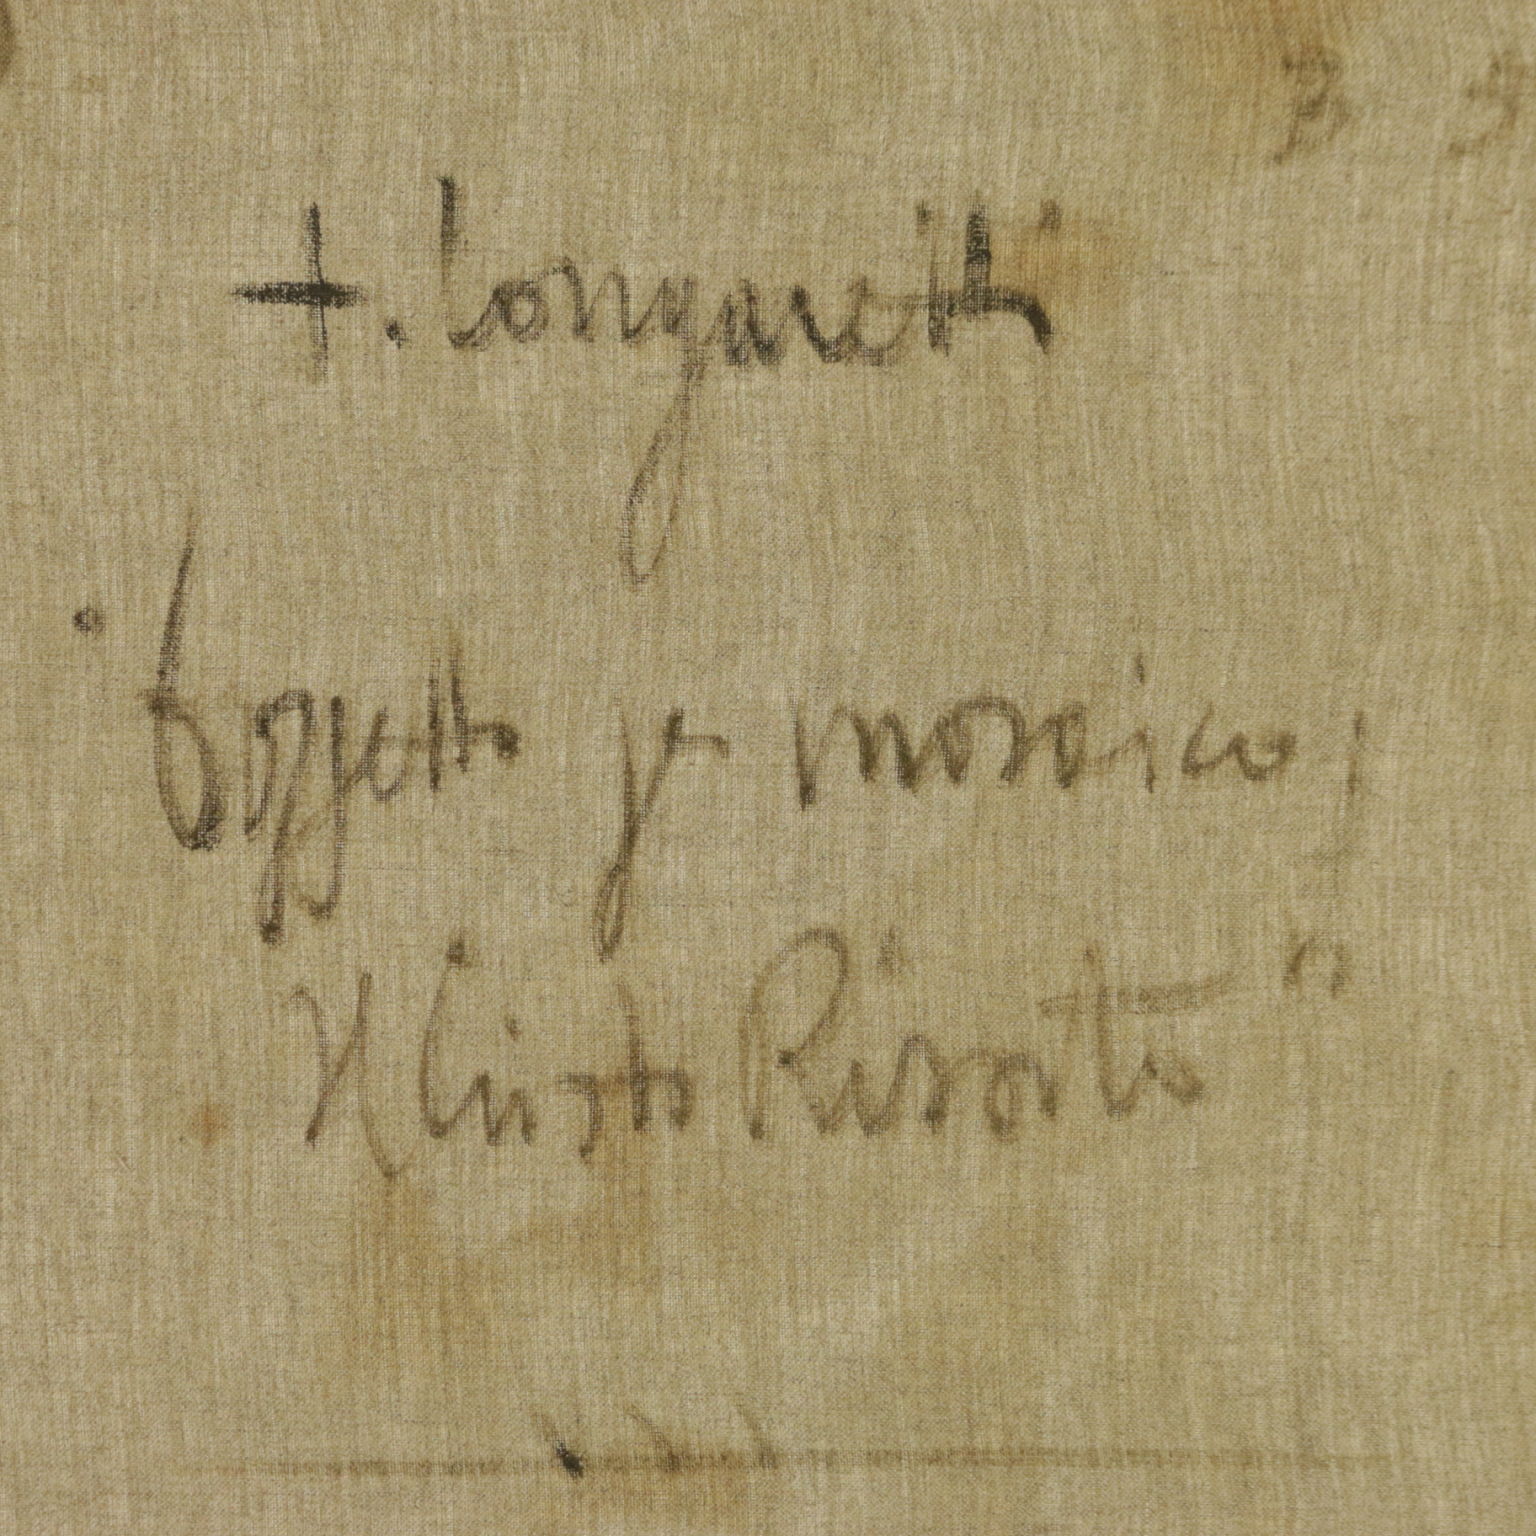 B
t. Longaretti
"bozzetto per mosaico,
Il Cristo Risorto"